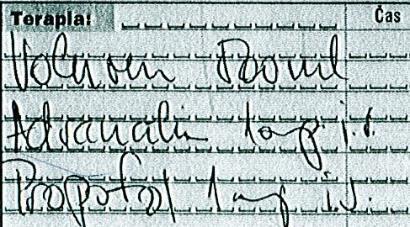 Terapia: Čas
Voluven 500ml
Adrenalin 1mg i.v.
Propofol 1mg i.v.